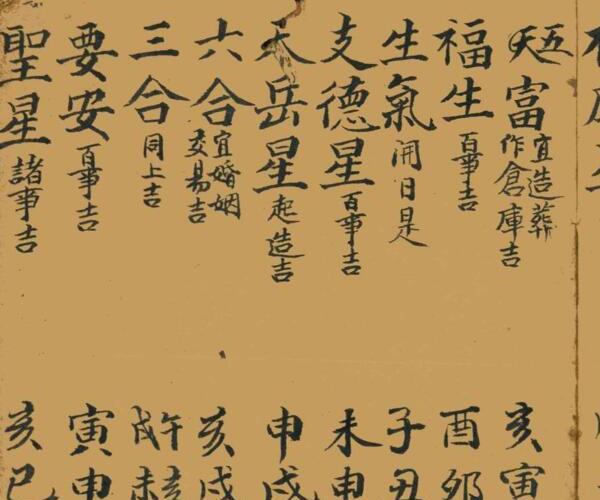 天富宜造葬作倉庫吉 亥寅
福生百事吉 酉卯
生氣開日是 子丑
支德星百事吉 未申
天岳星起造吉 申戌
六合宜婚姻交易吉 亥戌
三合同上吉 午戌亥未
要安百事吉 寅申
聖星諸事吉 亥巳